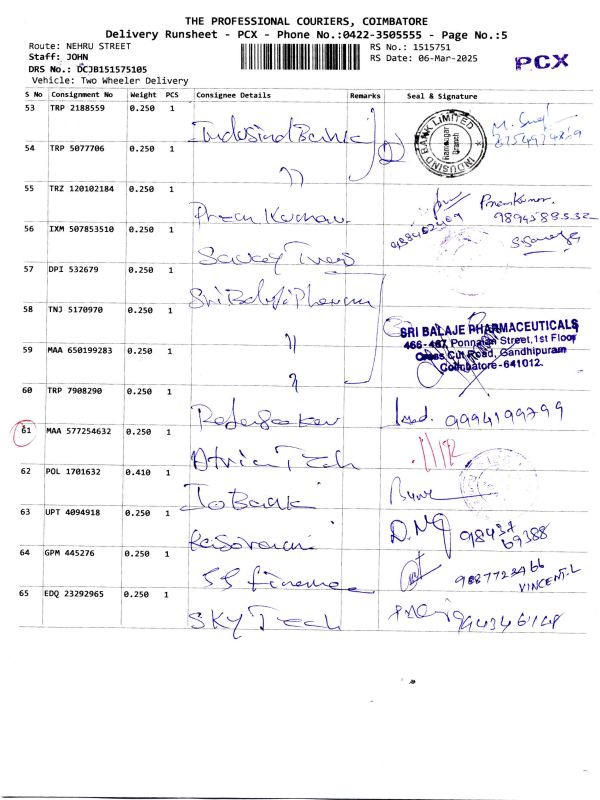 THE PROFESSIONAL COURIERS, COIMBATORE
Delivery Runsheet - PCX - Phone No.:0422-3505555 - Page No.:5
Route: NEHRU STREET
Staff: JOHN
DRS No.: DCJB151575105
Vehicle: Two Wheeler Delivery
RS No.: 1515751
RS Date: 06-Mar-2025
PCX
S No Consignment No Weight PCS Consignee Details Remarks Seal & Signature
53 TRP 2188559 0.250 1 IndusindBank
INDUSIND BANK LIMITED
Ramnagar Branch
54 TRP 5077706 0.250 1 "
55 TRZ 120102184 0.250 1 Prem Kumar
9894588532
56 IXM 507853510 0.250 1
57 DPI 532679 0.250 1 Sri Balaji Pharm
58 TNJ 5170970 0.250 1 "
SRI BALAJE PHARMACEUTICALS
466-467, Ponnaian Street,1st Floor
Cross Cut Road, Gandhipuram
Coimbatore-641012.
59 MAA 650199283 0.250 1 "
60 TRP 7908290 0.250 1 9994199799
61 MAA 577254632 0.250 1 Atria Tech
62 POL 1701632 0.410 1 Io Bank
63 UPT 4094918 0.250 1 98437
69388
64 GPM 445276 0.250 1 SS finance
9887723466
VINCENT.L
65 EDQ 23292965 0.250 1 SKY Tech
9943461148